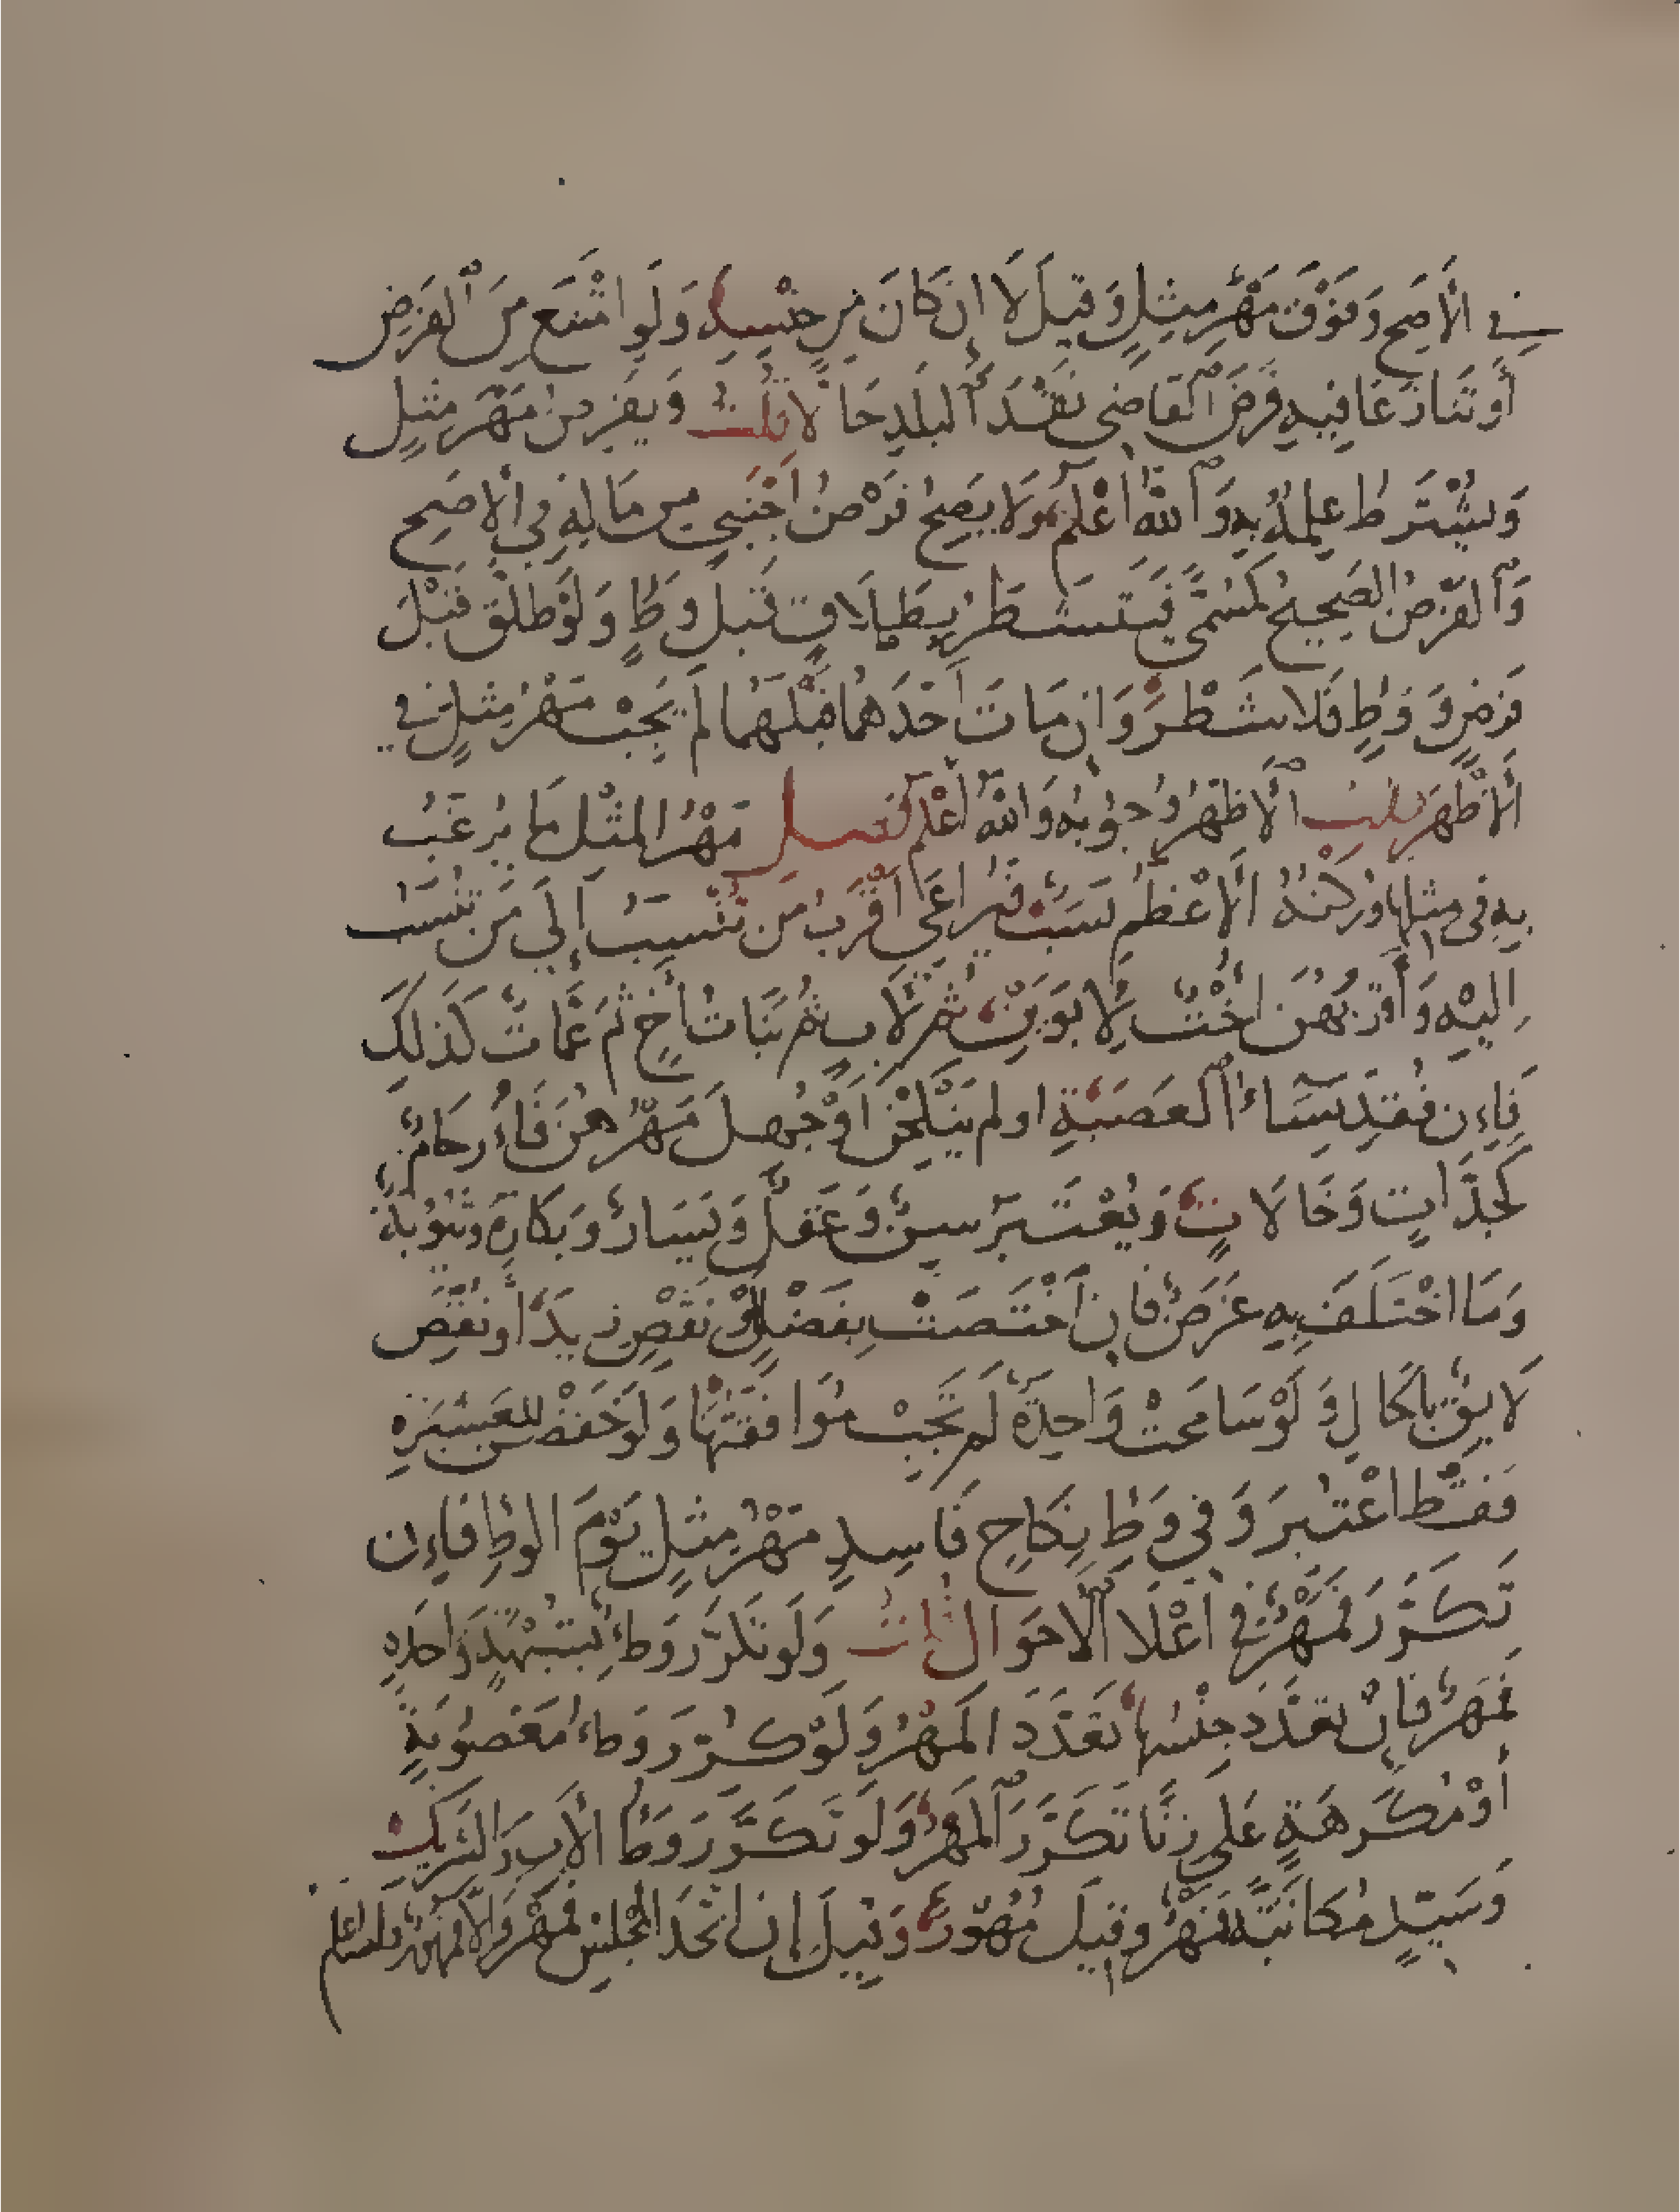 في الأصح وفوق مهر مثل وقيل لا ان كان من جنسه ولو امتنع من الفرض
أو تنازعا فيه فرض القاضي نقد البلد حالا قلت ويفرض مهر مثل
ويشترط علمه به والله أعلم ولا يصح فرض أجنبي من ماله في الأصح
والفرض الصحيح كمسمى فيتشطر بطلاق قبل وطء ولو طلق قبل
فرض ووطء فلا شطر وان مات أحدهما قبلهما لم يجب مهر مثل في
الأظهر قلت الأظهر وجوبه والله أعلم فصل مهر المثل ما يرغب
به في مثلها وركنه الأعظم نسب فيراعى أقرب من تنسب إلى من تنسب
اليه وأقربهن أخت لأبوين ثم لأب ثم بنات أخ ثم عمات كذلك
فإن فقد نساء العصبة او لم ينكحن أو جهل مهرهن فأرحام
كجدات وخالات ويعتبر سن وعقل ويسار وبكارة وثيوبة
وما اختلف به غرض فإن اختصت بفضل أو نقص زيد أو نقص
لايق بالحال ولو سامحت واحدة لم تجب موافقتها ولو خفضن للعشيرة
فقط اعتبر وفي وطء نكاح فاسد مهر مثل يوم الوطء فإن
تكرر فمهر في أعلا الأحوال قلت ولو تكرر وطء بشبهة واحدة
فمهر فإن تعدد جنسها تعدد المهر ولو كرر وطء مغصوبة
أو مكرهة على زنا تكرر المهر ولو تكرر وطء الأب والشريك
وسيد مكاتبة فمهر وقيل مهور وقيل إن اتحد المجلس فمهر والا فمهور والله أعلم